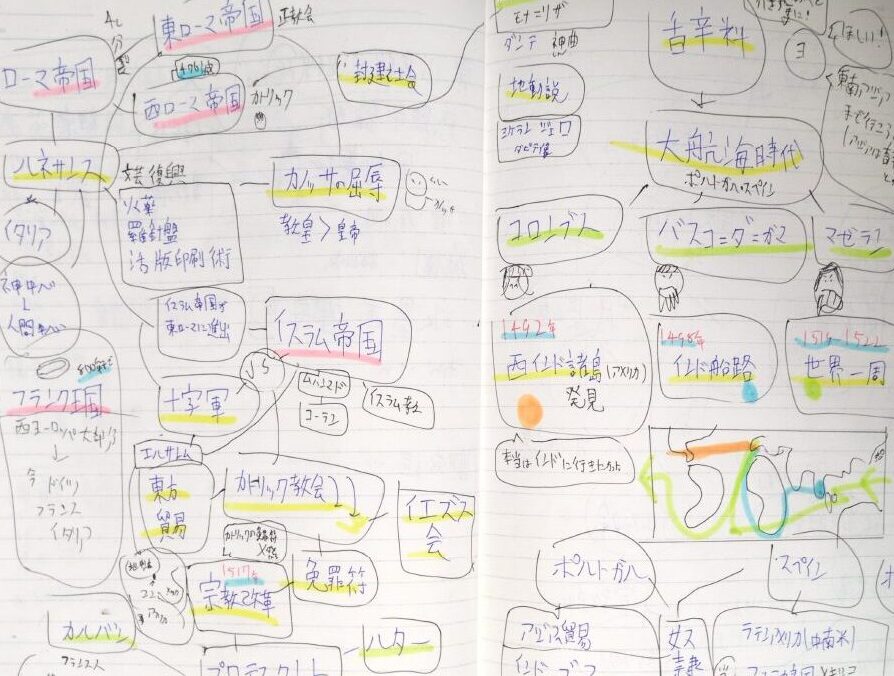 東ローマ帝国
正教会
ローマ帝国
476滅亡
西ローマ帝国
カトリック
封建社会
ルネサンス
文芸復興
火薬
羅針盤
活版印刷術
カノッサの屈辱
教皇>皇帝
イタリア
神中心
人間中心
イスラム帝国が
東ローマに進出
イスラム帝国
VS
ムハンマド
コーラン
イスラム教
十字軍
800年ごろ
フランク王国
西ヨーロッパ大部分
↓
今
ドイツ
フランス
イタリア
エルサレム
東方
貿易
カトリック教会
イエズス
会
1517年
宗教改革
免罪符
カルバン
フランス人
ルター
プロテスタント
モナ=リザ
ダンテ 神曲
地動説
ミケランジェロ
ダビデ像
香辛料
ほしい!
大航海時代
ポルトガル・スペイン
コロンブス
バスコ=ダ=ガマ
マゼラン
1492年
西インド諸島(アメリカ)
発見
1498年
インド船路
1519-1522
世界一周
本当はインドに行きたかった
ポルトガル
スペイン
アジア貿易
インド ゴア
奴隷
ラテンアメリカ(中南米)